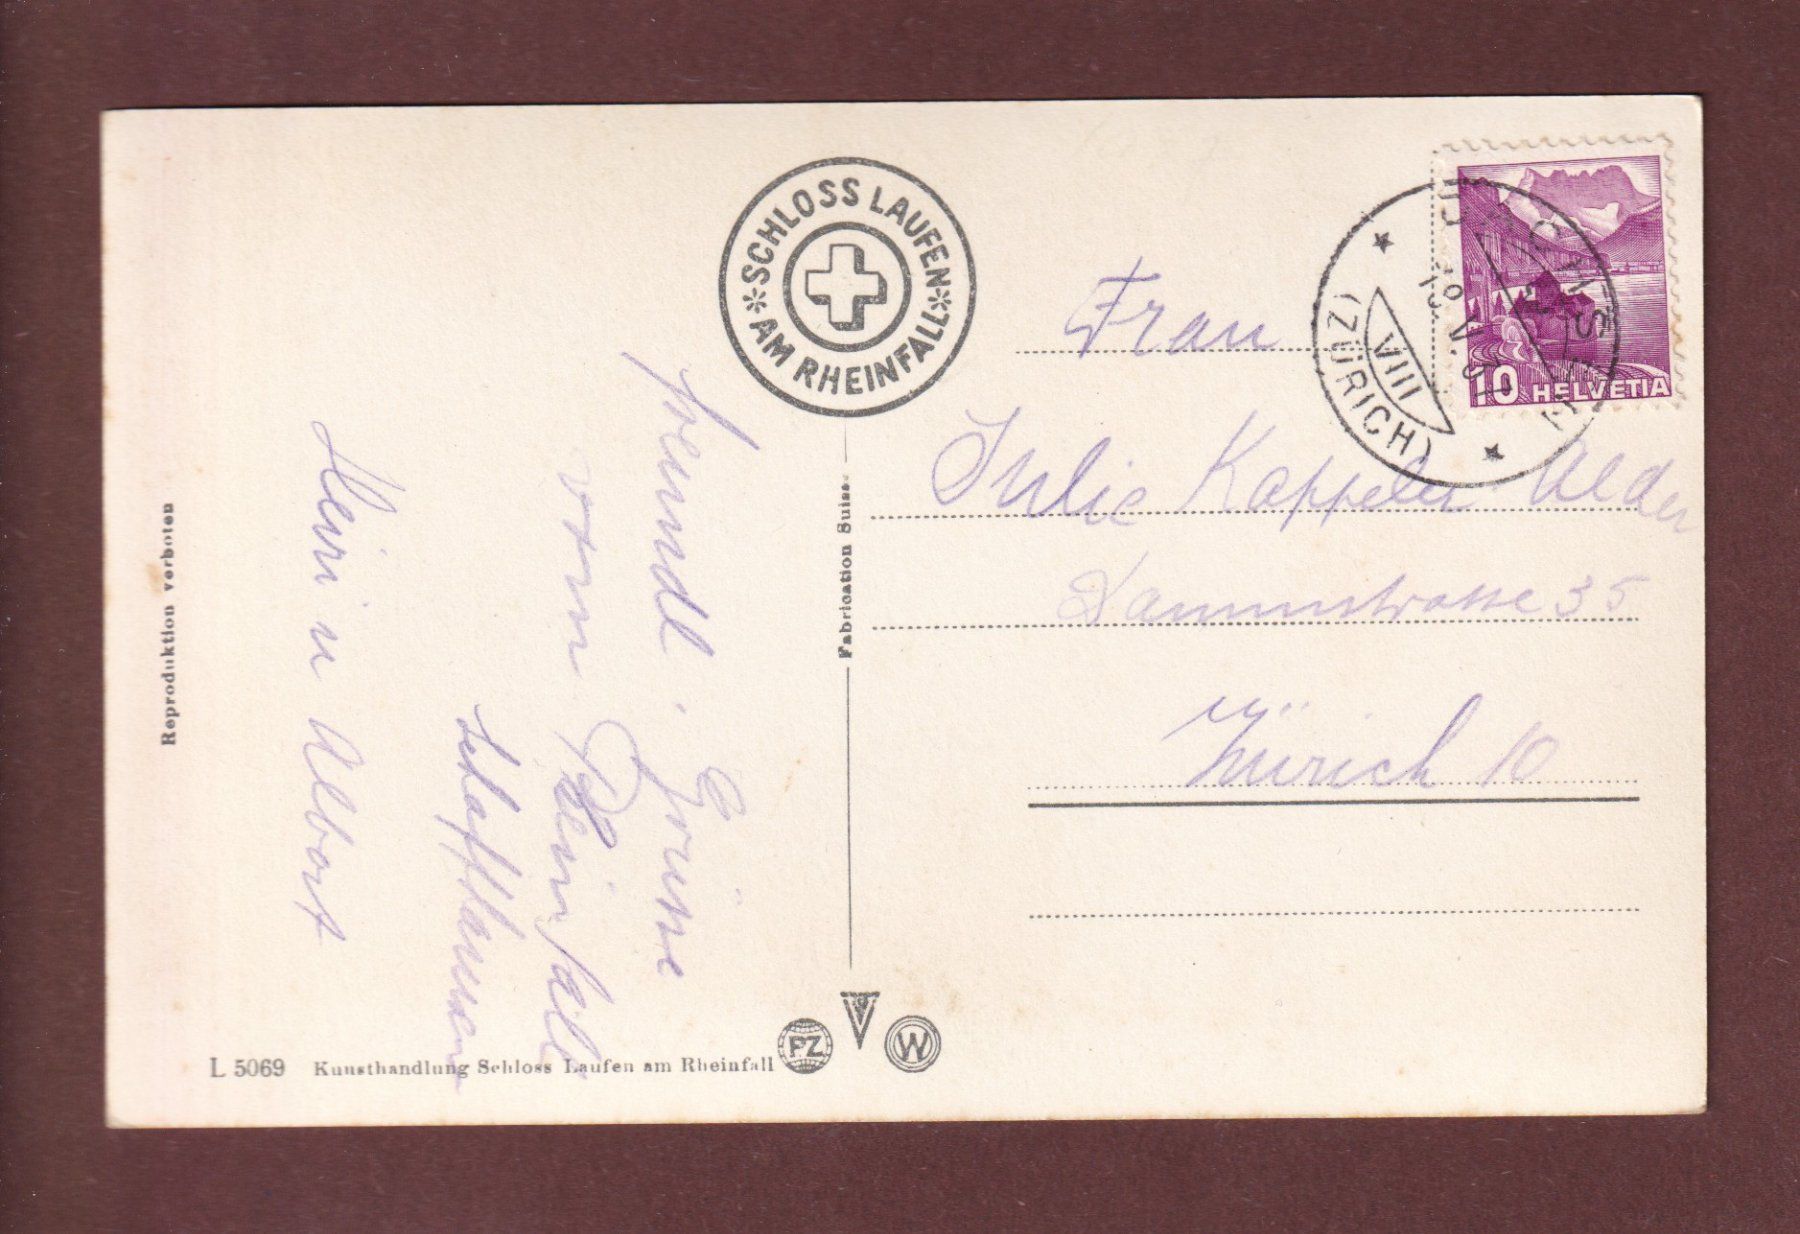 Reproduktion verboten
Heiri u Albert
freundl. Grüsse
vom Rheinfall
Schaffhausen
L 5069 Kunsthandlung Schloss Laufen am Rheinfall
SCHLOSS LAUFEN
AM RHEINFALL
Fabrication Suisse
PZ
W
Frau
Julie Kappeler Alder
Dammstrasse 35
Zürich 10
10 HELVETIA
(ZÜRICH)
VIII